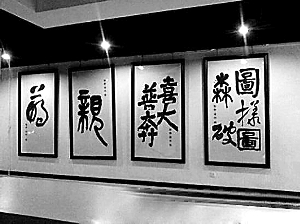 圖樣圖
森破
喜大
普奔
親
萌